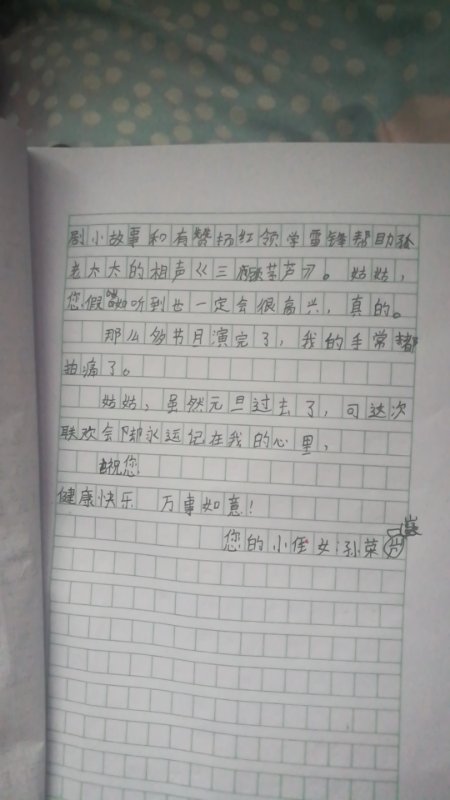 剧小故事和有赞扬红领学雷锋帮助孙
老太太的相声《三顾茅芦》。姑姑,
您假如听到也一定会很高兴,真的。
那么多节目演完了,我的手常都
拍痛了。
姑姑,虽然元旦过去了,可这次
联欢会却永远记在我的心里,
祝您
健康快乐 万事如意!
您的小侄女:孙荣